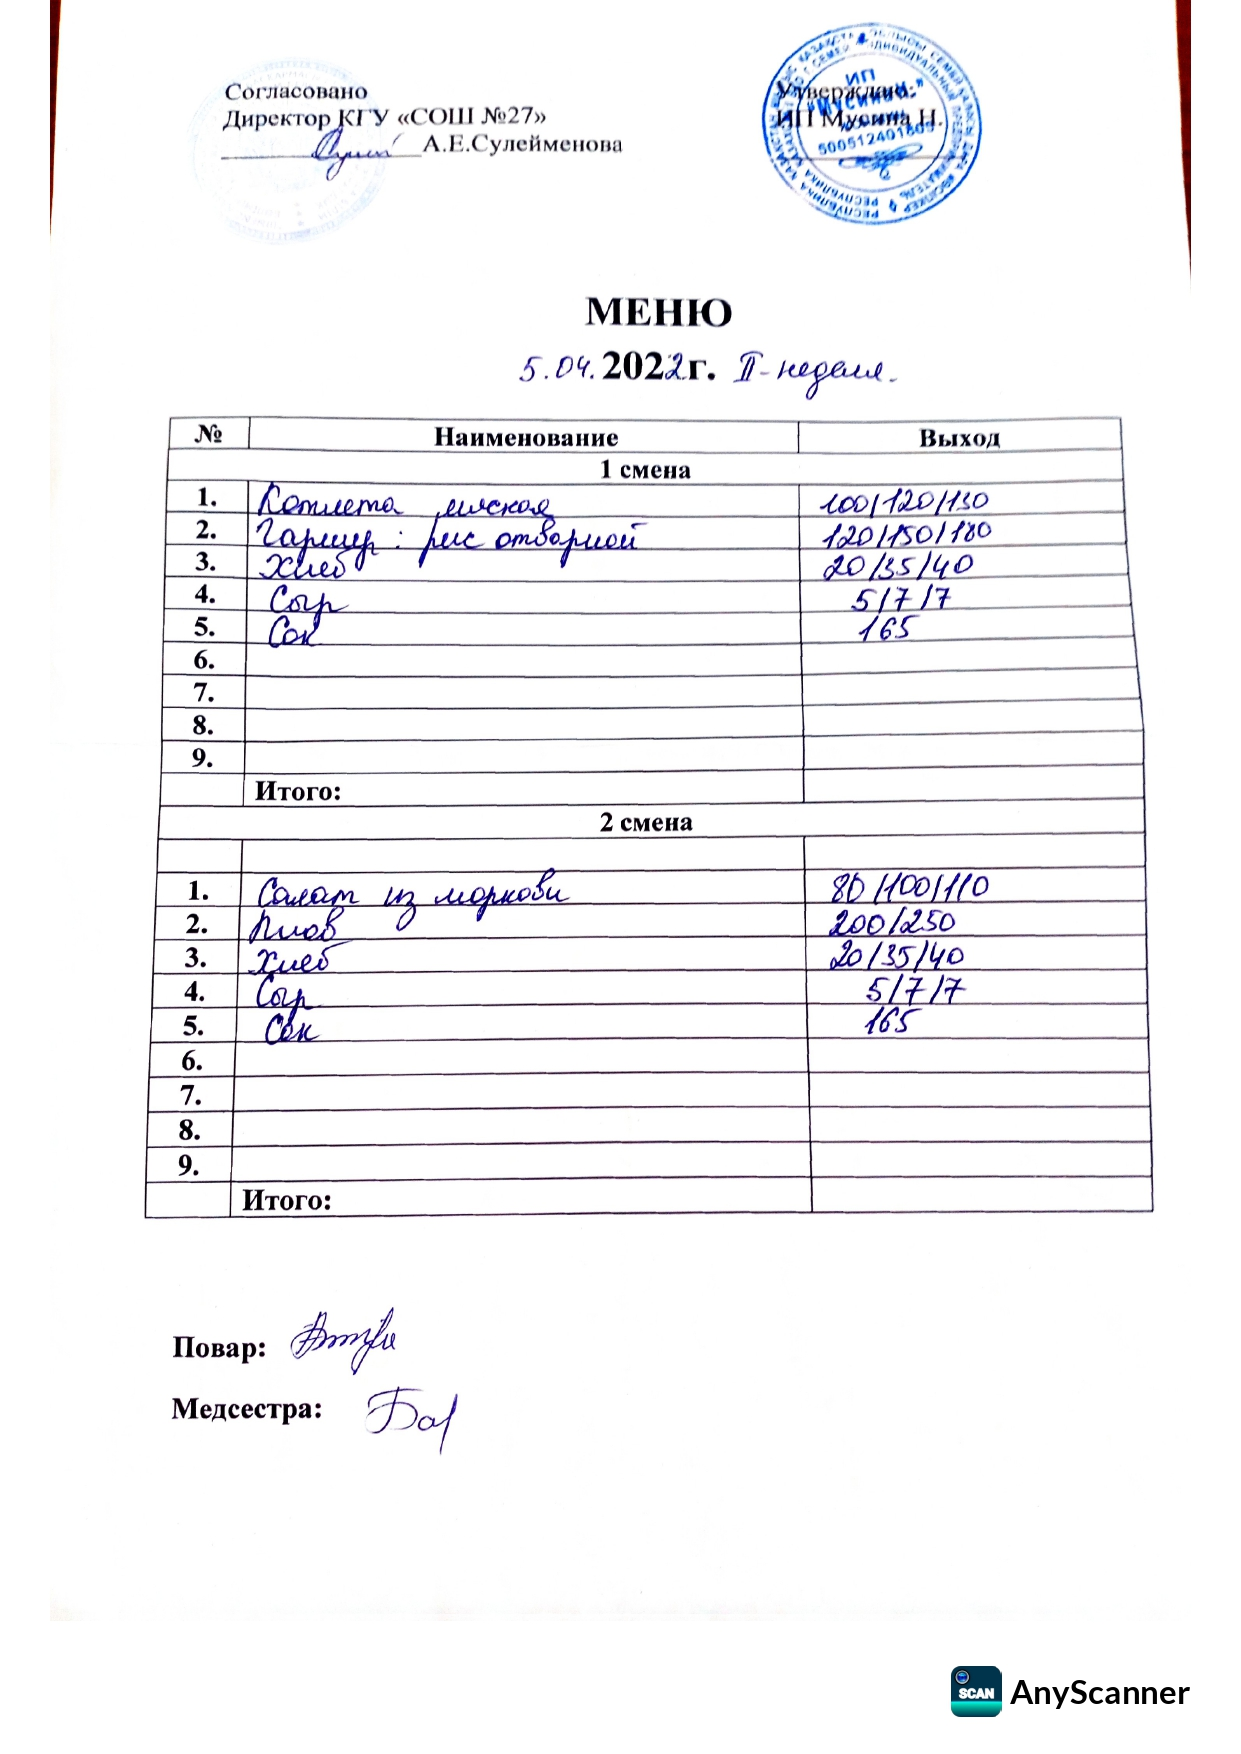 Согласовано
Директор КГУ «СОШ №27»
А.Е.Сулейменова
Утверждаю:
ИП Мусина Н.
ИП
МЕНЮ
5.04.2022г. II-неделя.
№ Наименование Выход
1 смена
1. Котлета мясная 100/120/130
2. Гарнир: рис отварной 120/150/180
3. Хлеб 20/35/40
4. Сыр 5/7/7
5. Сок 165
6.
7.
8.
9.
Итого:
2 смена
1. Салат из моркови 80/100/110
2. Плов 200/250
3. Хлеб 20/35/40
4. Сыр 5/7/7
5. Сок 165
6.
7.
8.
9.
Итого:
Повар:
Медсестра:
SCAN AnyScanner